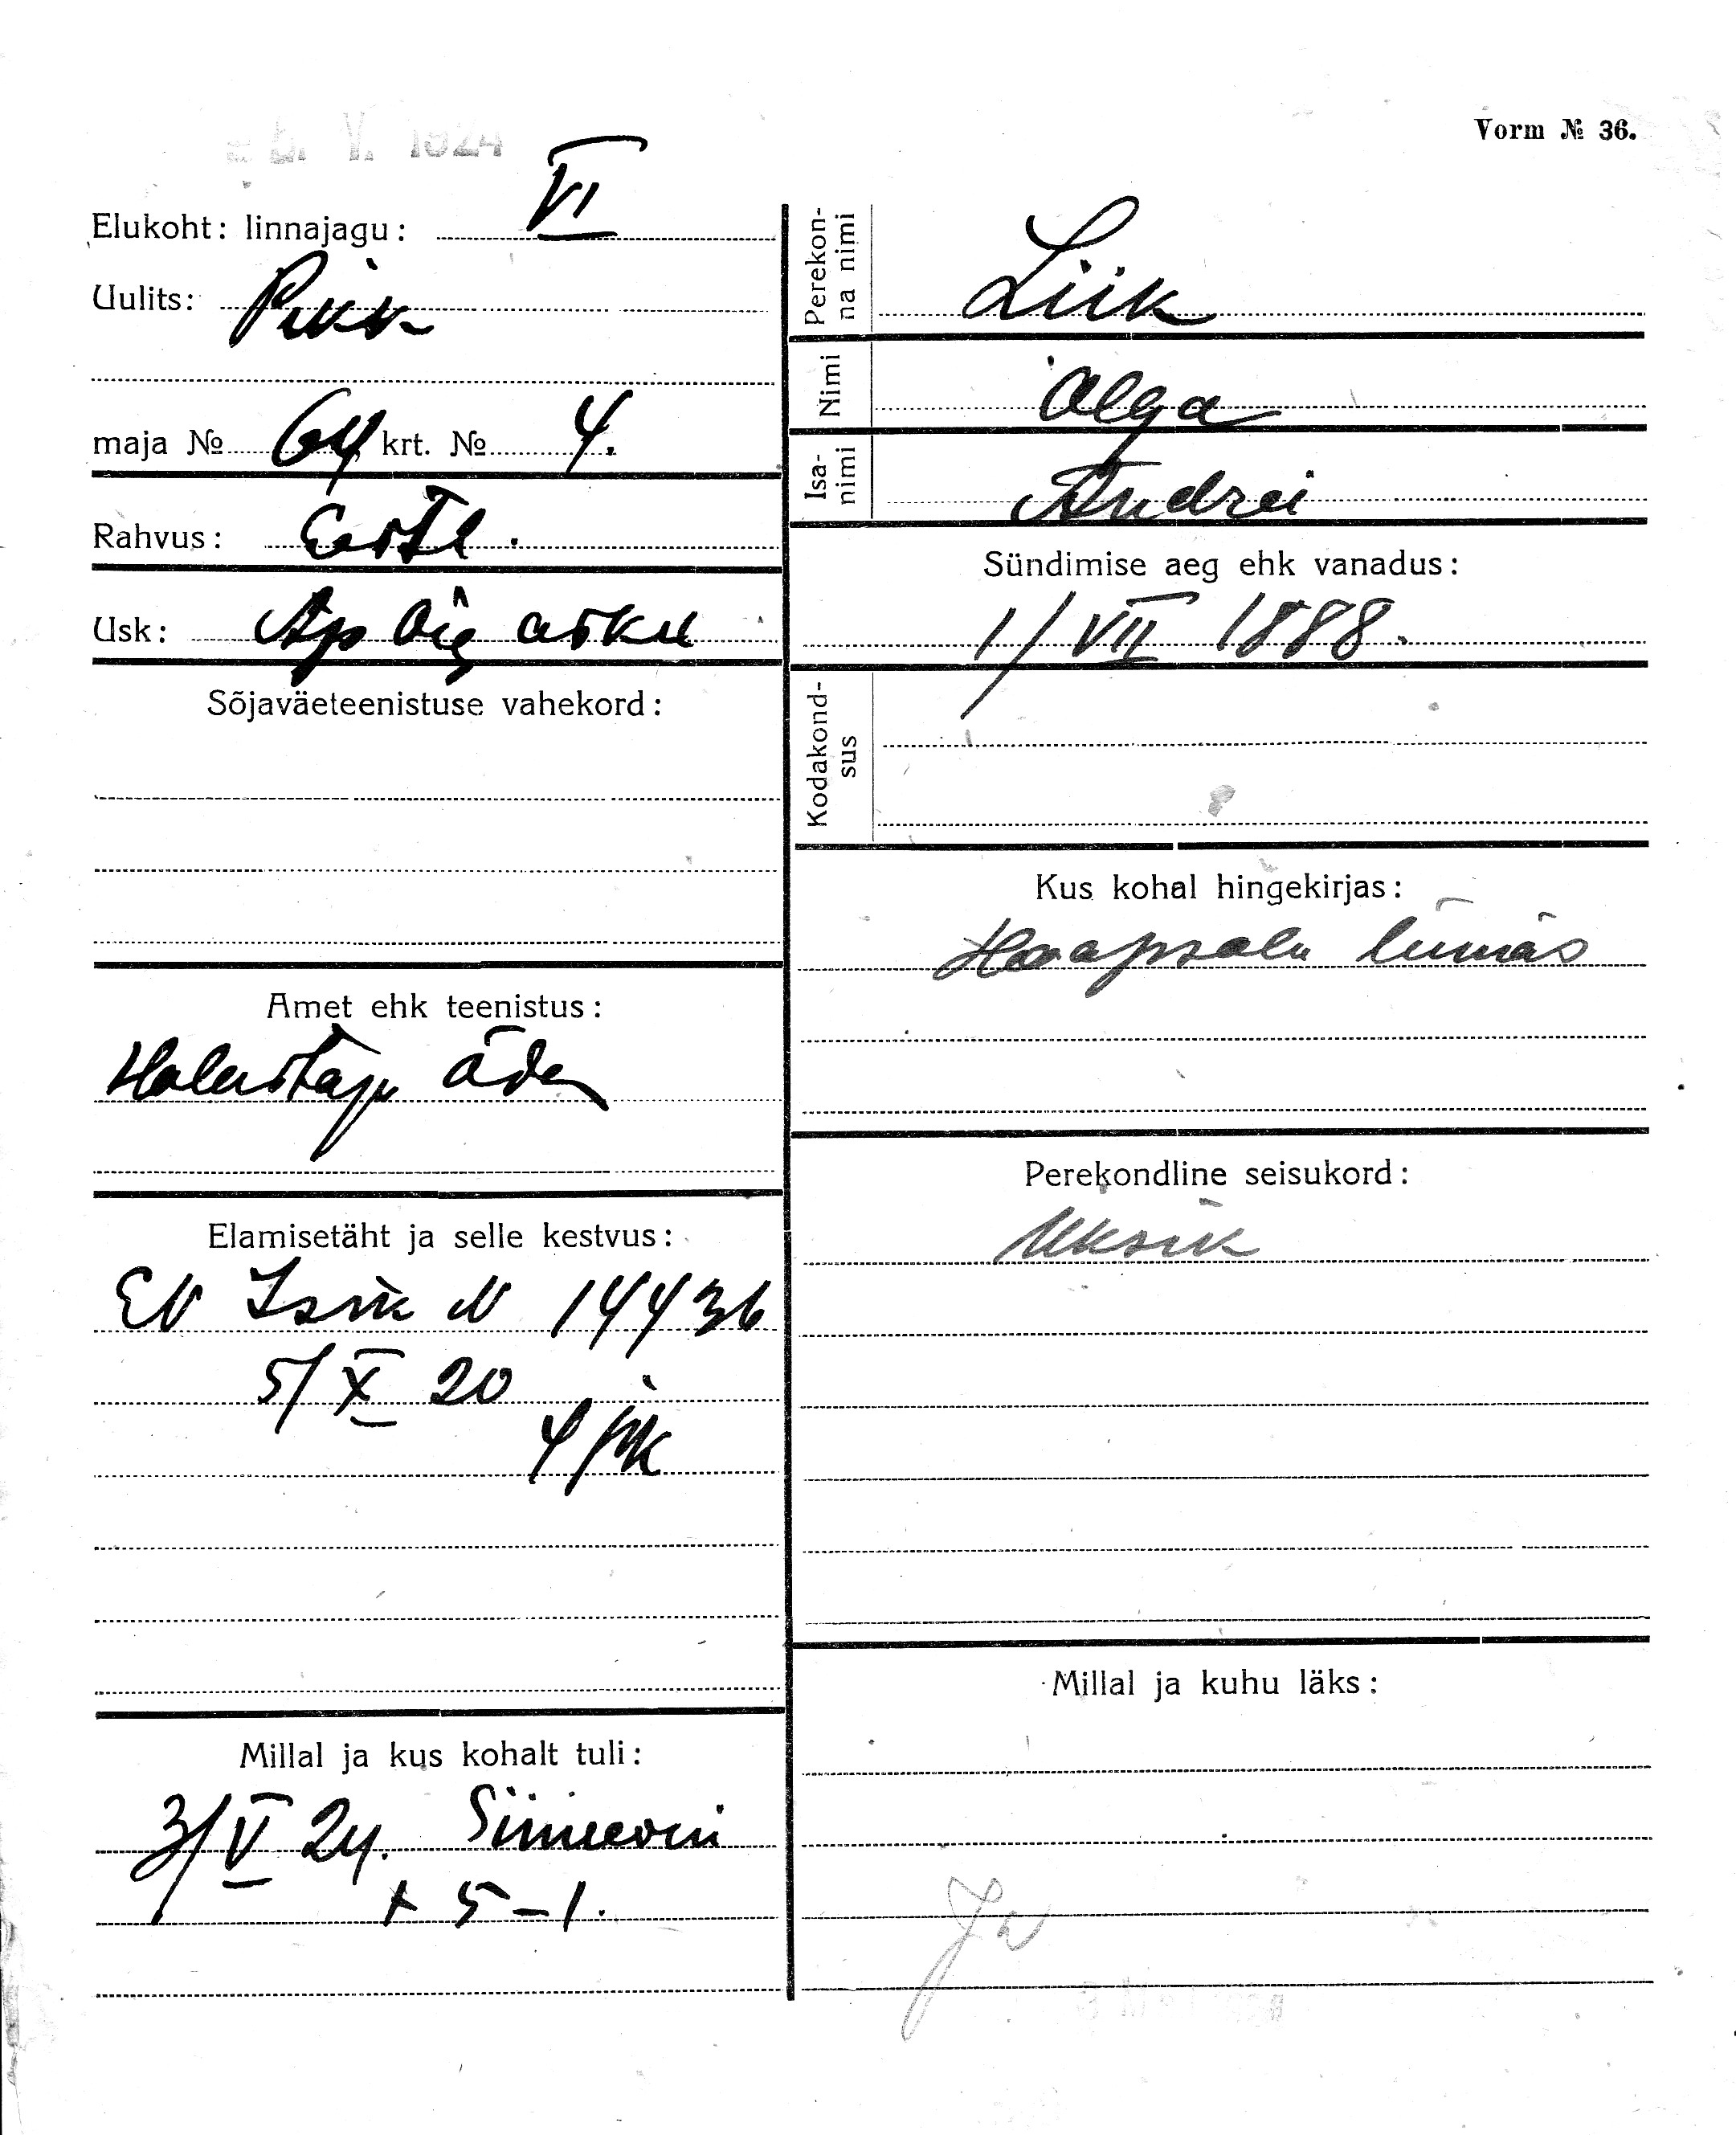 V. 1924
Vorm № 36.
Elukoht: linnajagu: VI
Uulits: Pikk
maja № 64, krt. № 4.
Rahvus: Eestl.
Usk: Ap õig usku
Sõjaväeteenistuse vahekord:
Amet ehk teenistus:
Halastaja õde
Elamisetäht ja selle kestvus:
EV Isik N 14436
5/X 20
4 jsk
Millal ja kus kohalt tuli:
3/V 24. Siimeoni
t 5-1.
Perekon-
na nimi
Liik
Nimi
Olga
Isa-
nimi
Andrei
Sündimise aeg ehk vanadus:
1/VII 1888.
Kodakond-
sus
Kus kohal hingekirjas:
Haapsalu linnas
Perekondline seisukord:
Üksik
Millal ja kuhu läks: